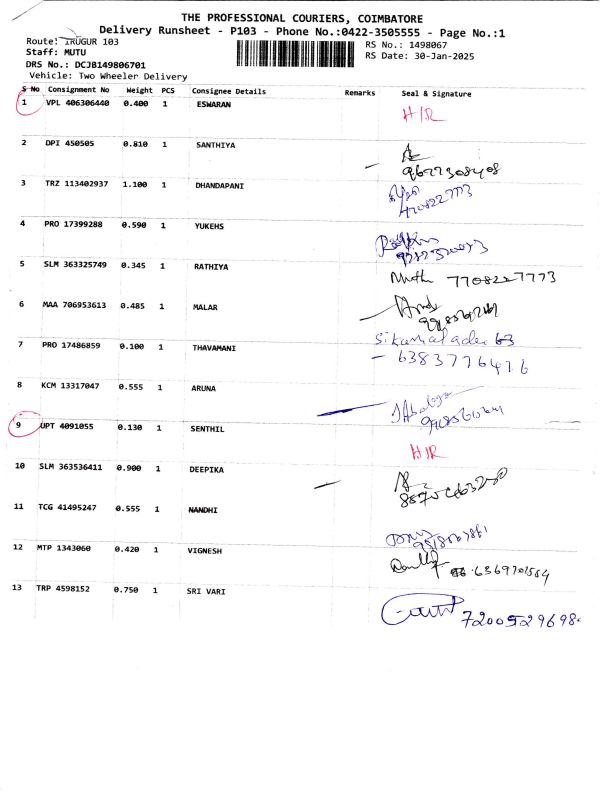 THE PROFESSIONAL COURIERS, COIMBATORE
Delivery Runsheet - P103 - Phone No.:0422-3505555 - Page No.:1
Route: IRUGUR 103
RS No.: 1498067
Staff: MUTU
RS Date: 30-Jan-2025
DRS No.: DCJB149806701
Vehicle: Two Wheeler Delivery
S No Consignment No Weight PCS Consignee Details Remarks Seal & Signature
1 VPL 406306440 0.400 1 ESWARAN H/R
2 DPI 450505 0.810 1 SANTHIYA
3 TRZ 113402937 1.100 1 DHANDAPANI
4 PRO 17399288 0.590 1 YUKEHS
5 SLM 363325749 0.345 1 RATHIYA Muth 7708227773
6 MAA 706953613 0.485 1 MALAR
7 PRO 17486859 0.100 1 THAVAMANI
6383776476
8 KCM 13317047 0.555 1 ARUNA
9 UPT 4091055 0.130 1 SENTHIL H/R
10 SLM 363536411 0.900 1 DEEPIKA
11 TCG 41495247 0.555 1 NANDHI
12 MTP 1343060 0.420 1 VIGNESH
13 TRP 4598152 0.750 1 SRI VARI
7200529698